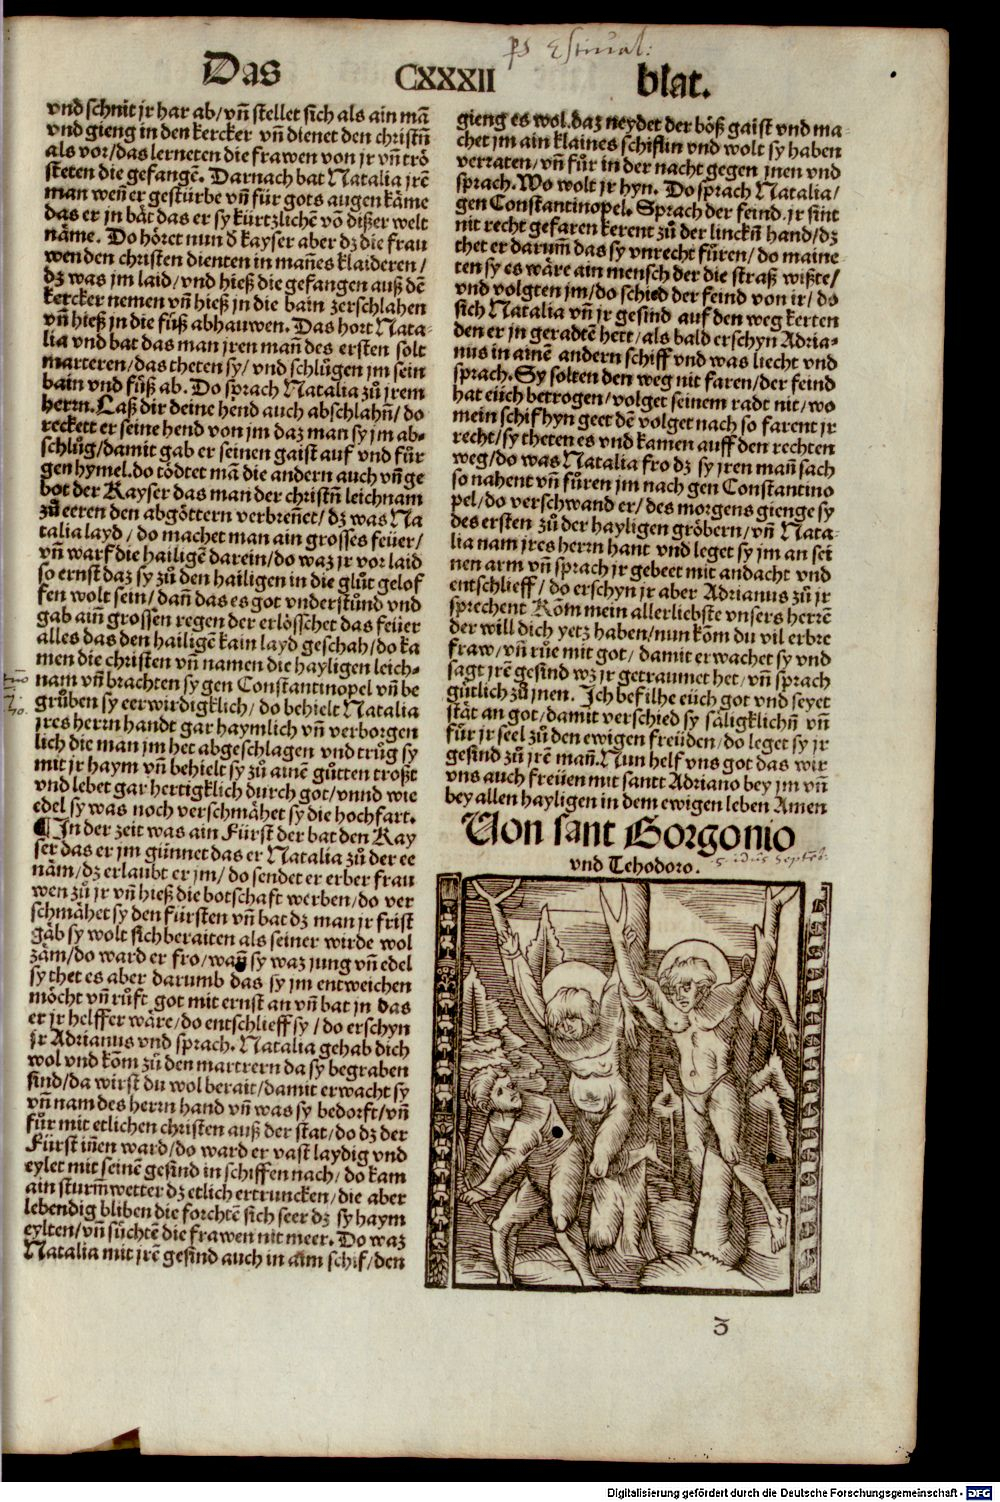 ps Estiual:
Das CXXXII blat.
vnd schnit jr har ab/vñ stellet sich als ain mã
vnd gieng in den kercker vñ dienet den christñ
als vor/das lerneten die frawen von jr vñ trö
steten die gefangẽ. Darnach bat Natalia jrẽ
man weñ er gestürbe vñ für gots augen käme
das er jn bät das er sy kürtzlichẽ võ dißer welt
näme. Do höret nun d̕ kayser aber dz die frau
wen den christen dienten in mañes klaideren/
dz was jm laid/vnd hieß die gefangen auß dẽ
kercker nemen vñ hieß jn die bain zerschlahen
vñ hieß jn die füß abhauwen. Das hort Nata-
lia vnd bat das man jren mañ des ersten solt
marteren/das theten sy/ vnd schlůgen jm sein
bain vnd fůß ab. Do sprach Natalia zů jrem
herrn. Laß dir deine hend auch abschlahñ/do
reckett er seine hend von jm daz man sy jm ab-
schlůg/damit gab er seinen gaist auf vnd fůr
gen hymel. do tödtet mã die andern auch vñ ge
bot der Kayser das man der christñ leichnam
zů eeren den abgöttern verbreñet/dz was Na
talia layd/do machet man ain grosses feüer/
vñ warf die hailigẽ darein/do waz jr vor laid
so ernst daz sy zů den hailigen in die glůt gelof
fen wolt sein/dañ das es got vnderstůnd vnd
gab aim̃ grossen regen der erlösschet das feüer
alles das den hailigẽ kain layd geschah/do ka
men die christen vñ namen die hayligen leich-
nam vñ brachten sy gen Constantinopel vñ be
grůben sy eerwirdigklich/do behielt Natalia
jres herrn handt gar haymlich vñ verborgen
lich die man jm het abgeschlagen vnd trůg sy
mit jr haym vñ behielt sy zů ainẽ gůtten troßt
vnd lebet gar hertigklich durch got/vnnd wie
edel sy was noch verschmähet sy die hochfart.
¶In der zeit was ain Fürst der bat den Kay
ser das er jm günnet das er Natalia zů der ee
näm/dz erlaubt er jm/do sendet er erber frau
wen zů jr vñ hieß die botschaft werben/do ver
schmähet sy den fürsten vñ bat dz man jr frist
gäb sy wolt sich beraiten als seiner wirde wol
zäm/do ward er fro/wañ sy waz jung vñ edel
sy thet es aber darumb das sy jm entweichen
möcht vñ růft got mit ernst an vñ bat jn das
er jr helffer wäre/do entschlieff sy/do erschyn
jr Adrianus vnd sprach. Natalia gehab dich
wol vnd kõm zů den martrern da sy begraben
sind/da wirst du wol berait/damit erwacht sy
vñ nam des herrn hand vñ was sy bedorft/vñ
fůr mit etlichen christen auß der stat/do dz der
Fürst iñen ward/do ward er vast laydig vnd
eylet mit seinẽ gesind in schiffen nach/do kam
ain sturm̃wetter dz etlich ertruncken/die aber
lebendig bliben die forchtẽ sich seer dz sy haym
eylten/vñ sůchtẽ die frawen nit meer. Do waz
Natalia mit jrẽ gesind auch in aim schif/den
gieng es wol. daz neydet der böß gaist vnd ma-
chet jm ain klaines schiflin vnd wolt sy haben
verraten/vñ fůr in der nacht gegen jnen vnd
sprach. Wo wolt jr hyn. Do sprach Natalia/
gen Constantinopel. Sprach der feind. jr sint
nit recht gefaren kerent zů der linckñ hand/dz
thet er darum̃ das sy vnrecht fůren/do maine-
ten sy es wäre ain mensch der die straß wißte/
vnd volgten jm/do schied der feind von ir/do
sich Natalia vñ jr gesind auf den weg kerten
den er jn geradtẽ hett/als bald erschyn Adria-
nus in ainẽ andern schiff vnd was liecht vnd
sprach. Sy solten den weg nit faren/der feind
hat eüch betrogen/volget seinem radt nit/wo
mein schif hyn geet dẽ volget nach so farent jr
recht/sy theten es vnd kamen auff den rechten
weg/do was Natalia fro dz sy jren mañ sach
so nahent vñ fůren jm nach gen Constantino
pel/do verschwand er/des morgens gienge sy
des ersten zů der hayligen gröbern/vñ Nata-
lia nam jres herrn hant vnd leget sy jm an sei
nen arm vñ sprach jr gebeet mit andacht vnd
entschlieff/do erschyn jr aber Adrianus zů jr
sprechent Kõm mein allerliebste vnsers herrẽ
der will dich yetz haben/nun kõm du vil erbre
fraw/vñ růe mit got/ damit erwachet sy vnd
sagt jrẽ gesind wz jr getraumet het/vñ sprach
gůtlich zů jnen. Ich befilhe eüch got vnd seyet
stät an got/damit verschied sy säligklichñ vñ
fůr jr seel zů den ewigen freüden/do leget sy jr
gesind zů jrẽ mañ. Nun helf vns got das wir
vns auch freüen mit sant Adriano bey jm vñ
bey allen hayligen in dem ewigen leben Amen
Von sant Gorgonio
vnd Tehodoro.
5 idus Septēb:
3
Digitalisierung gefördert durch die Deutsche Forschungsgemeinschaft - DFG